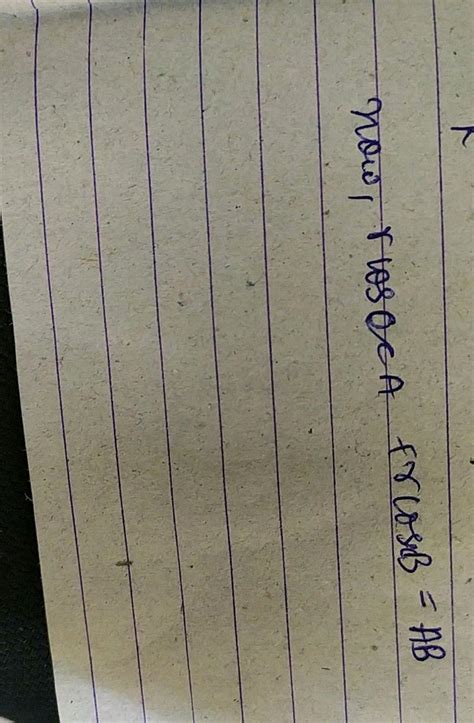 now, r cosθcA + r cosB = AB